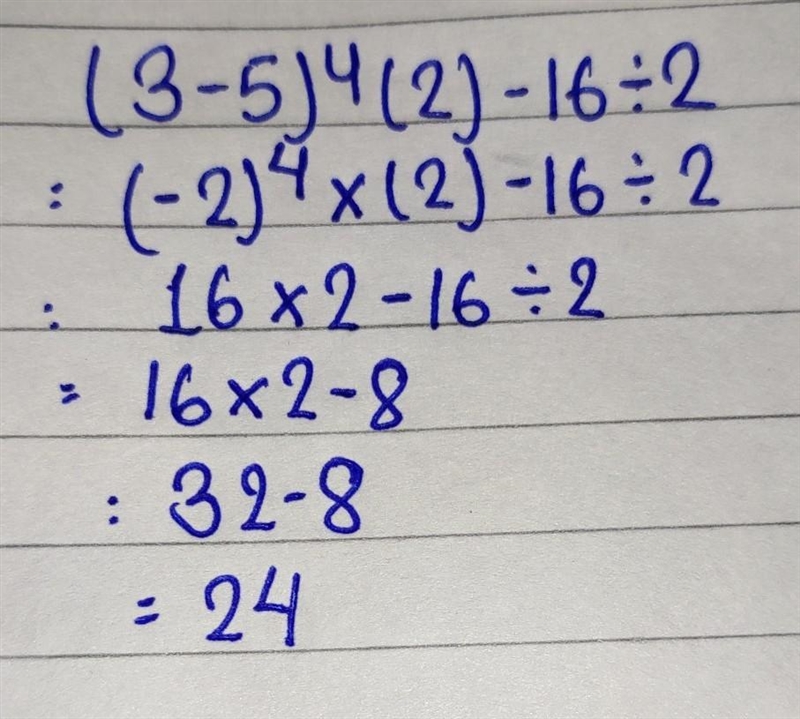 (3-5)⁴(2)-16÷2
: (-2)⁴×(2)-16÷2
: 16×2-16÷2
= 16×2-8
: 32-8
= 24